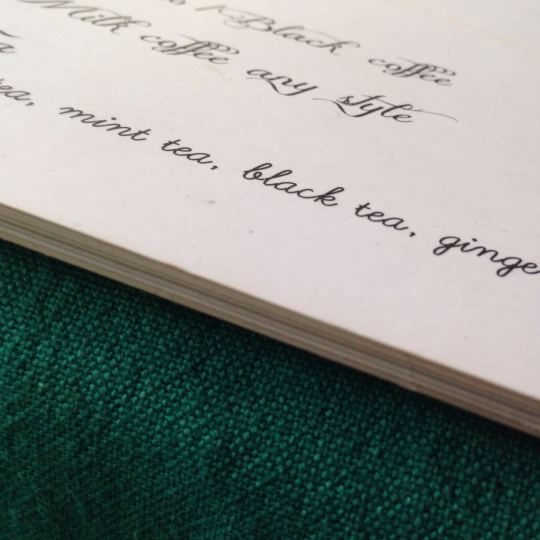 Black coffee
Milk coffee any style
tea, mint tea, black tea, ginge